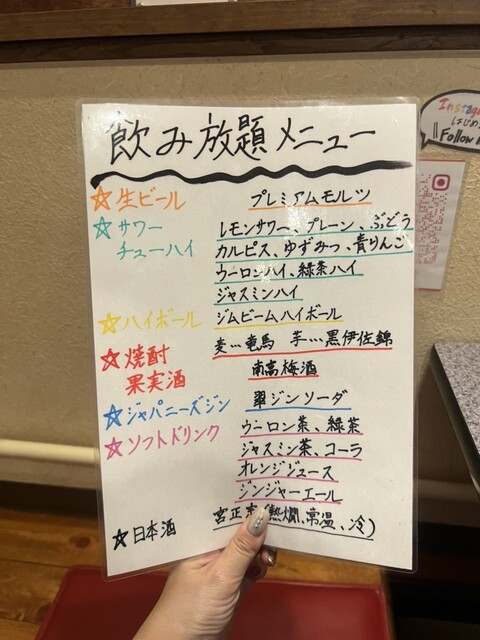 飲み放題メニュー
☆生ビール プレミアムモルツ
☆サワー レモンサワー、プレーン、ぶどう
チューハイ カルピス、ゆずみつ、青りんご
ウーロンハイ、緑茶ハイ
ジャスミンハイ
☆ハイボール ジムビームハイボール
☆焼酎 麦…竜馬 芋…黒伊佐錦
果実酒 南高梅酒
☆ジャパニーズジン 翠ジンソーダ
☆ソフトドリンク ウーロン茶、緑茶
ジャスミン茶、コーラ
オレンジジュース
ジンジャーエール
☆日本酒 宮正 熱燗、常温、冷)
Instag
はじめ
Follow